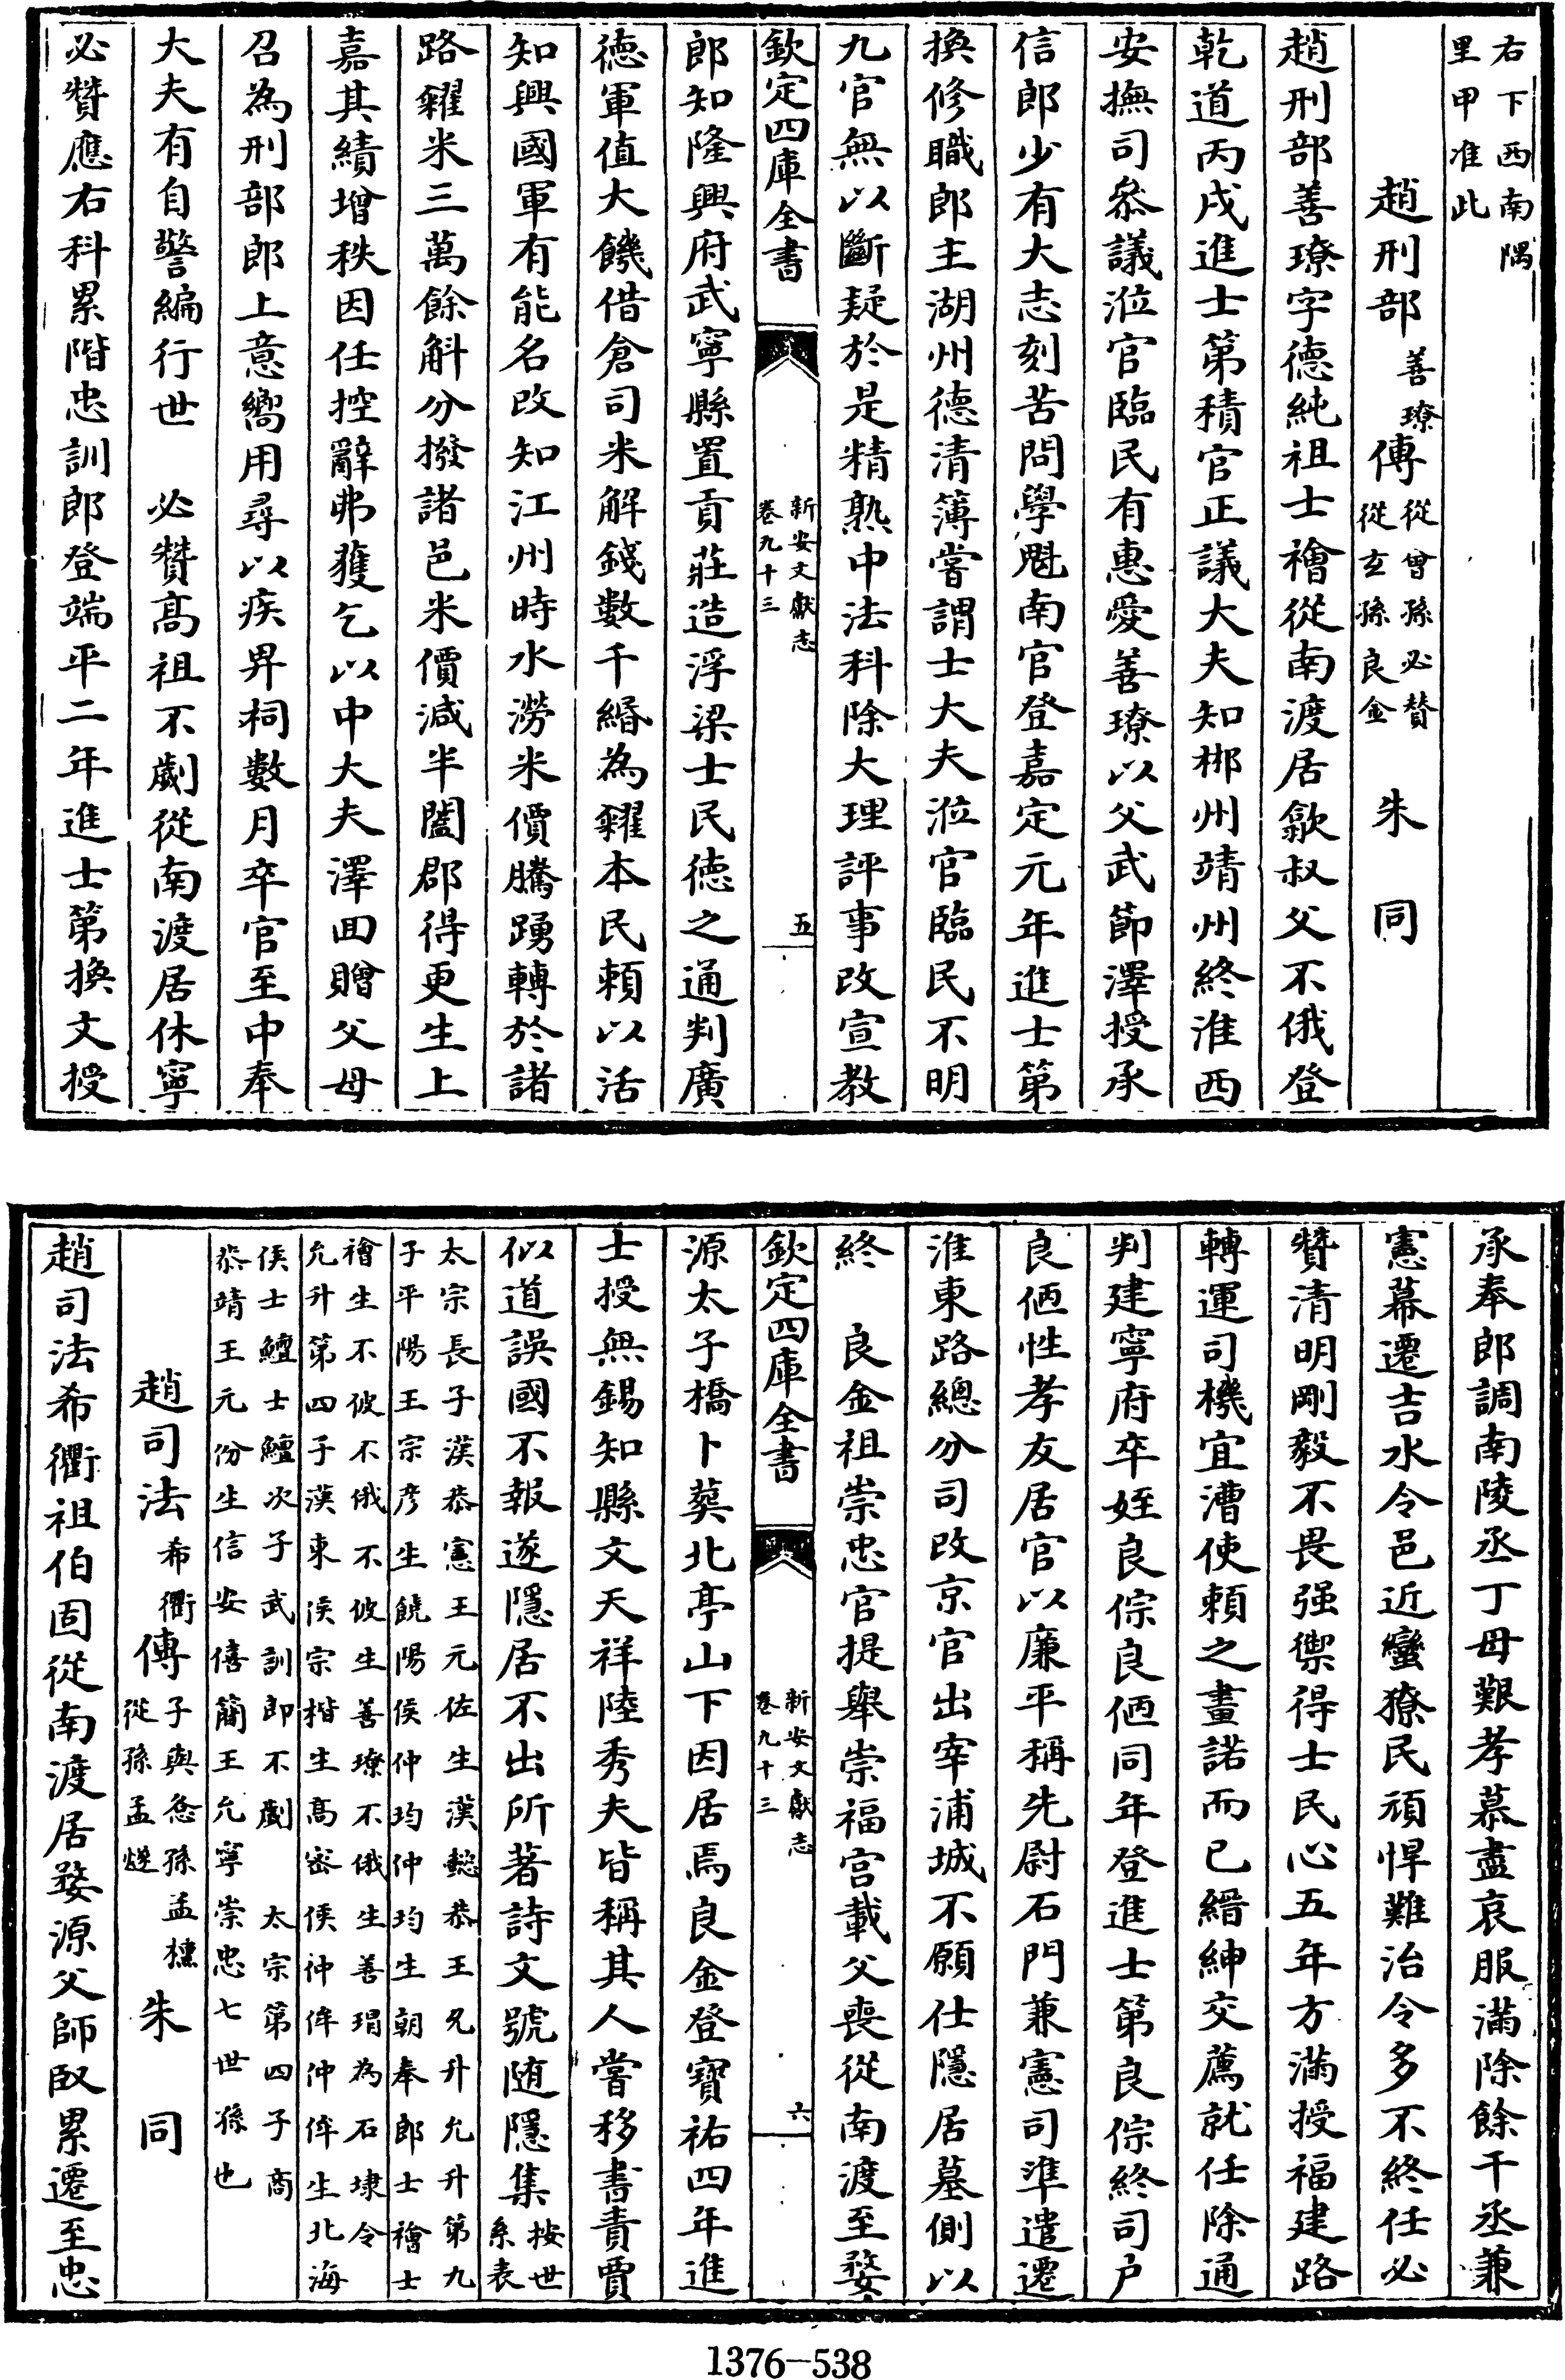 右下西南隅
里甲准此
趙刑部善璙傳從曾孫必贊從玄孫良金 朱同
趙刑部善璙字德純祖士禬從南渡居歙叔父不俄登
乾道丙戌進士第積官正議大夫知郴州靖州終淮西
安撫司叅議涖官臨民有惠愛善璙以父武節澤授承
信郎少有大志刻苦問學魁南官登嘉定元年進士第
換修職郎主湖州德清簿嘗謂士大夫涖官臨民不明
九官無以斷疑於是精熟中法科除大理評事改宣教
欽定四庫全書 新安文獻志卷九十三 五
郎知隆興府武寧縣置貢莊造浮梁士民徳之通判廣
徳軍值大饑借倉司米解錢數千緡為糴本民頼以活
知興國軍有能名改知江州時水澇米價騰踴轉於諸
路糴米三萬餘斛分撥諸邑米價減半闔郡得更生上
嘉其績增秩因任控辭弗獲乞以中大夫澤回贈父母
召為刑部郎上意嚮用尋以疾畀祠數月卒官至中奉
大夫有自警編行世 必贊髙祖不劌從南渡居休寧
必贊應右科累階忠訓郎登端平二年進士第換文授
承奉郎調南陵丞丁母艱孝慕盡哀服滿除餘干丞兼
憲幕遷吉水令邑近蠻獠民頑悍難治令多不終任必
贊清明剛毅不畏强禦得士民心五年方滿授福建路
轉運司機宜漕使頼之畫諾而已縉紳交薦就任除通
判建寧府卒姪良倧良㐴同年登進士第良倧終司户
良㐴性孝友居官以亷平稱先尉石門兼憲司準遣遷
淮東路總分司改京官出宰浦城不願仕隱居墓側以
終 良金祖崇忠官提舉崇福宫載父喪從南渡至婺
欽定四庫全書 新安文獻志卷九十三 六
源太子橋卜葬北亭山下因居焉良金登寳祐四年進
士授無錫知縣文天祥陸秀夫皆稱其人嘗移書責賈
似道誤國不報遂隱居不出所著詩文號随隱集按世系表
太宗長子漢恭憲王元佐生漢懿恭王允升允升第九
子平陽王宗彦生饒陽侯仲均仲均生朝奉郎士禬士
禬生不佊不俄不佊生善璙不俄生善琄為石埭令
允升第四子漢東侯宗楷生髙密侯仲侔仲侔生北海
侯士鱣士鱣次子武訓郎不劌 太宗第四子商
恭靖王元份生信安僖簡王允寧崇忠七世孫也
趙司法希衢傳子與悆孫孟㯤從孫孟燧 朱同
趙司法希衢祖伯固從南渡居婺源父師䀒累遷至忠
1376-538